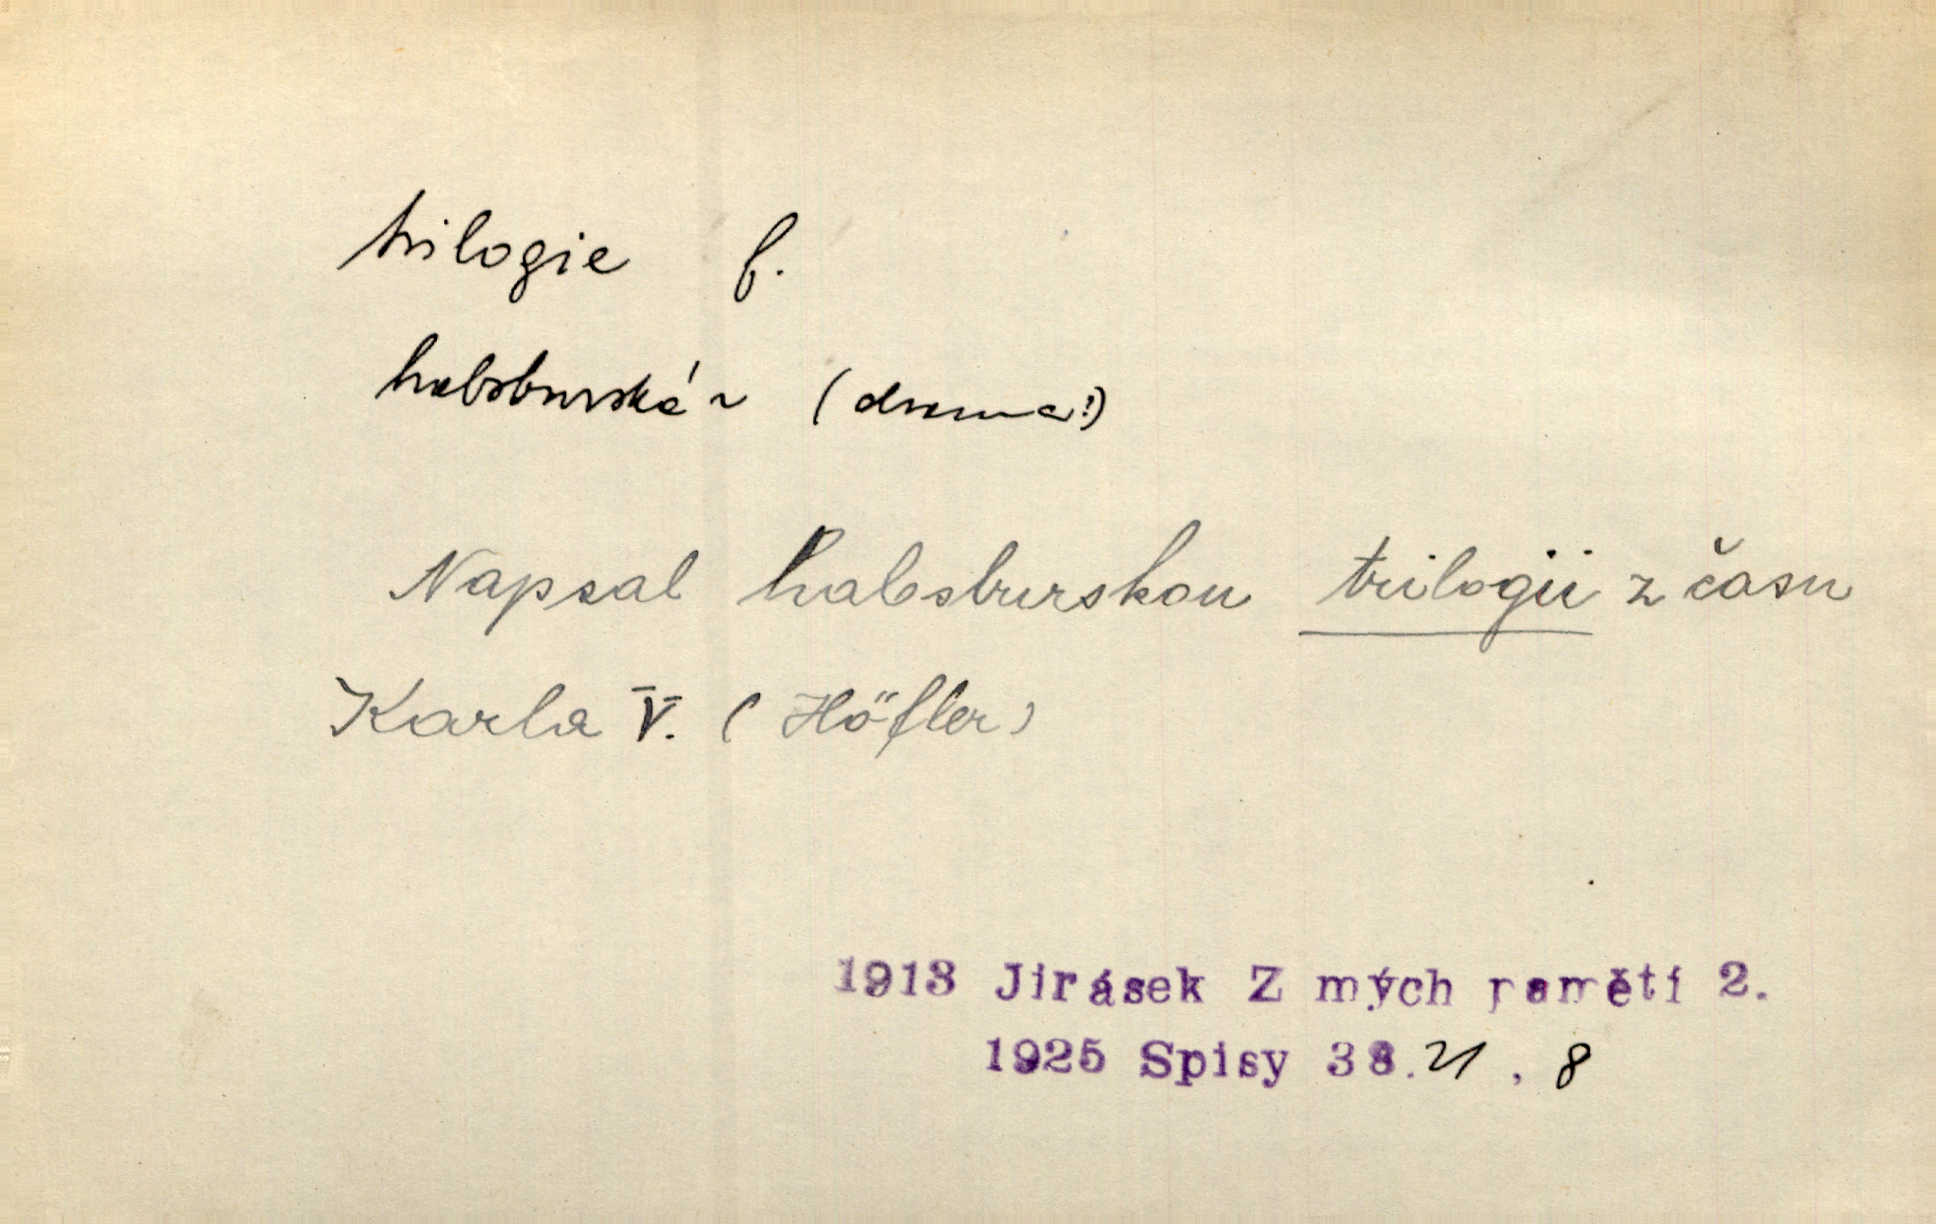 trilogie f.
habsburská ~ (drama!)
Napsal habsburskou trilogii z času
Karla V. (Höfler)
1913 Jirásek Z mých pamětí 2.
1925 Spisy 38.21, 8